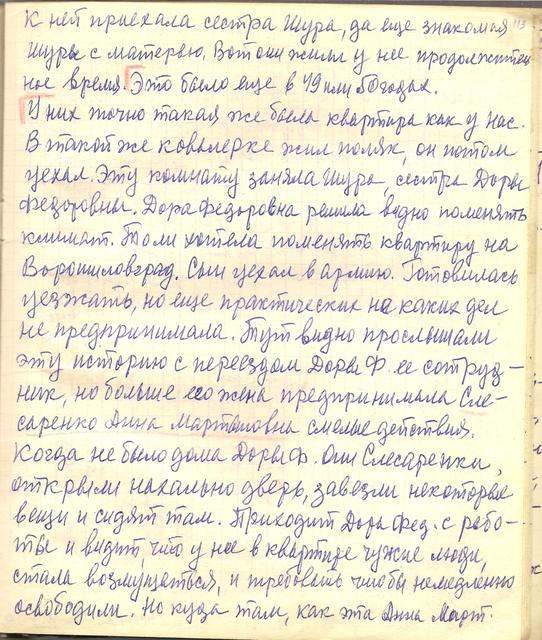 К ней приехала сестра Шура, да еще знакомая 113
Шуры с матерью. Вот они жили у нее продолжитель
ное время. Это было еще в 49 или 50 годах.
У них точно такая же была квартира как у нас.
В такой же ковалерке жил поляк, он потом
уехал. Эту комнату заняла Шура, сестра Доры
Федоровны. Дора Федоровна решила видно поменять
климат. То ли хотела поменять квартиру на
Ворошиловград. Сын уехал в армию. Готовилась
уезжать, но еще практических на каких дел
не предпринимала. Тут видно прослышали
эту историю с переездом Доры Ф. ее сотруд-
ник, но больше его жена предпринимала Сле-
саренко Анна Мартыновна смелые действия.
Когда не было дома Доры Ф. Они Слесаренки,
открыли нахально дверь, завезли некоторые
вещи и сидят там. Приходит Дора Фед. с рабо-
ты и видит, что у нее в квартире чужие люди,
стала возмущаться, и требовать чтобы немедленно
освободили. Но куда там, как эта Анна Март.